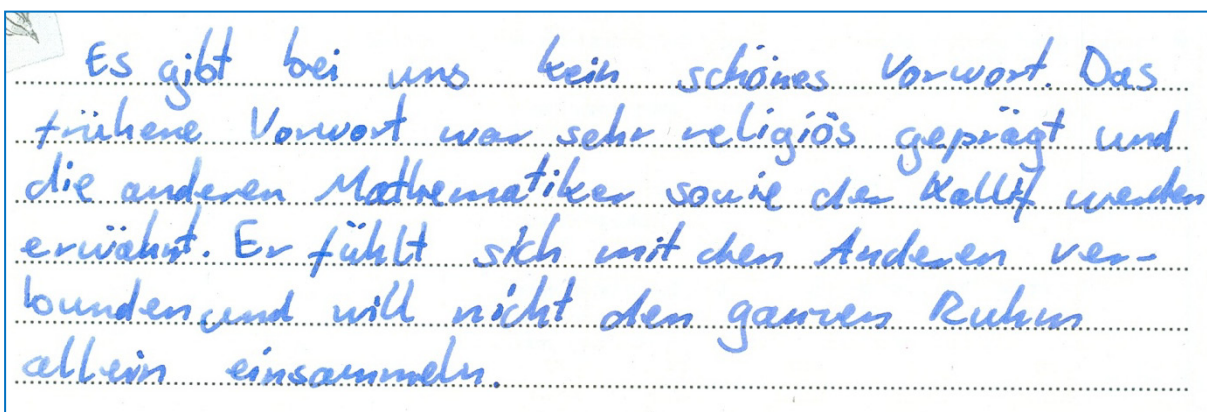 Es gibt bei uns kein schönes Vorwort. Das
frühere Vorwort war sehr religiös geprägt und
die anderen Mathematiker sowie der Kallif werden
erwähnt. Er fühlt sich mit den Anderen ver-
bunden und will nicht den ganzen Ruhm
allein einsammeln.